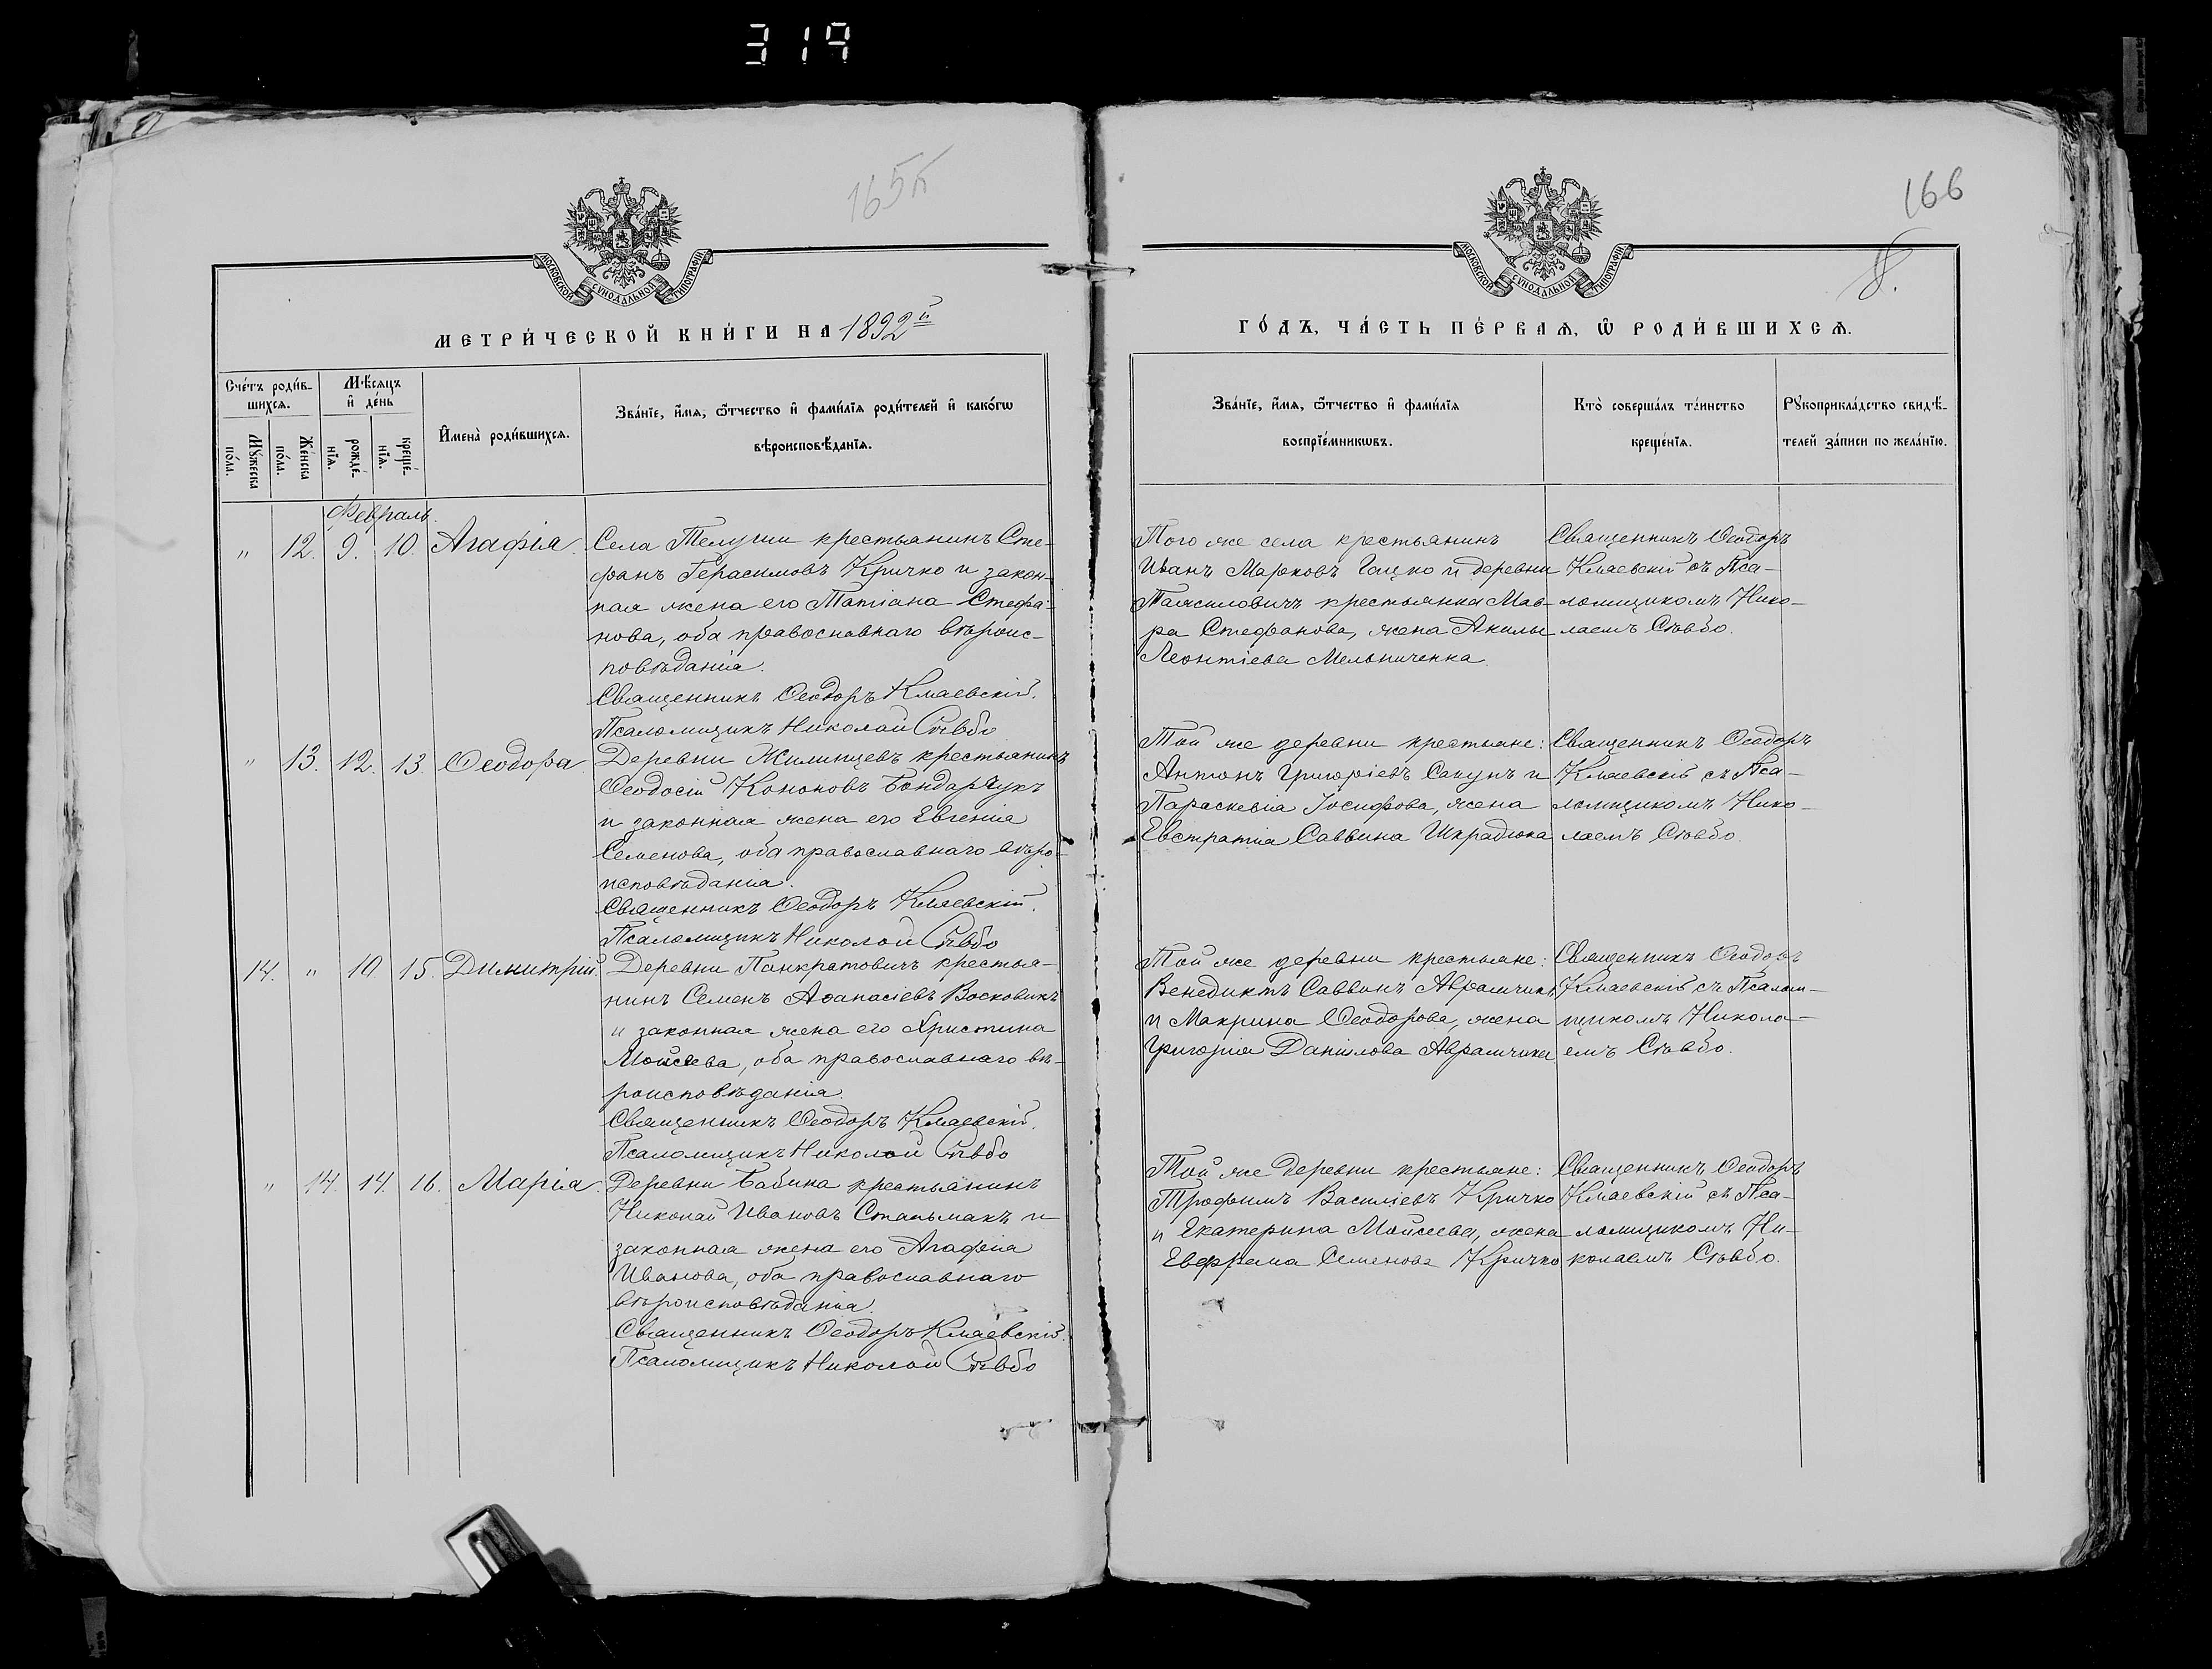 319
165
166
8.
МОСКОВСКОЙ СѴНОДАЛЬНОЙ ТИПОГРАФІИ
МОСКОВСКОЙ СѴНОДАЛЬНОЙ ТИПОГРАФІИ
МЕТРИ́ЧЕСКОЙ КНИ́ГИ НА 1892й
ГО́ДЪ, ЧА́СТЬ ПЕ́РВАѦ, Ѿ РОДИ́ВШИХСѦ.
Сче́тъ роди́в-
шихсѧ.
Мꙋ́жеска по́ла.
Же́нска по́ла.
Мѣ́сяцъ
и҆ де́нь
рожде́-
нїѧ.
креще́-
нїѧ.
И҆мена̀ роди́вшихсѧ.
Зва́нїе, и҆́мѧ, ѻ҆́тчество и҆ фами́лїѧ роди́телей и҆ како́гѡ
вѣроисповѣ́данїѧ.
Зва́нїе, и҆́мѧ, ѻ҆́тчество и҆ фами́лїѧ
воспрїе́мникѡвъ.
Кто̀ соверша́лъ та́инство
креще́нїѧ.
Рꙋкоприкла́дство свидѣ́-
телей за́писи по жела́нїю.
Февраль.
" 12. 9. 10. Агафія.
Села Телуши крестьянинъ Сте-
фанъ Герасимовъ Кричко и закон-
ная жена его Татіана Стефа-
нова, оба православнаго вѣроис-
повѣданія.
Священникъ Ѳеодоръ Кмаевскій.
Псаломщикъ Николай Сѣвбо
Того же села крестьянинъ
Иванъ Марковъ Гацко и деревни
крестьянка Мав-
ра Стефанова, жена Акилы
Леонтіева Мельниченка.
Священникъ Ѳеодоръ
Кмаевскій съ Пса-
ломщикомъ Нико-
лаемъ Сѣвбо.
" 13. 12. 13. Ѳеодора
Деревни Жилинцевъ крестьянинъ
Ѳеодосій Кононовъ Бондарчукъ
и законная жена его Евгенія
Семенова, оба православнаго вѣро-
исповѣданія.
Священникъ Ѳеодоръ Кмаевскій.
Псаломщикъ Николай Сѣвбо
Той же деревни крестьяне:
Антонъ Григоріевъ Сакунъ и
Параскевія Іосифова, жена
Евстратія Саввина Шкрадюка
Священникъ Ѳеодоръ
Кмаевскій съ Пса-
ломщикомъ Нико-
лаемъ Сѣвбо.
14. " 10. 15. Димитрій.
Деревни Панкратовичъ крестья-
нинъ Семенъ Аѳанасіевъ Восковикъ
и законная жена его Христина
Моисеева, оба православнаго вѣ-
роисповѣданія.
Священникъ Ѳеодоръ Кмаевскій.
Псаломщикъ Николай Сѣвбо
Той же деревни крестьяне:
Венедиктъ Саввинъ Аврамчикъ
и Макрина Ѳеодорова, жена
Григорія Данилова Аврамчика
Священникъ Ѳеодоръ
Кмаевскій съ Псалом-
щикомъ Никола-
емъ Сѣвбо.
" 14. 14. 16. Марія.
Деревни Бабина крестьянинъ
Николай Ивановъ Стальмакъ и
законная жена его Агафія
Иванова, оба православнаго
вѣроисповѣданія.
Священникъ Ѳеодоръ Кмаевскій.
Псаломщикъ Николай Сѣвбо
Той же деревни крестьяне:
Трофимъ Василіевъ Кричко
и Екатерина Мойсеева, жена
Евфрема Семенова Кричко
Священникъ Ѳеодоръ
Кмаевскій съ Пса-
ломщикомъ Ни-
колаемъ Сѣвбо.